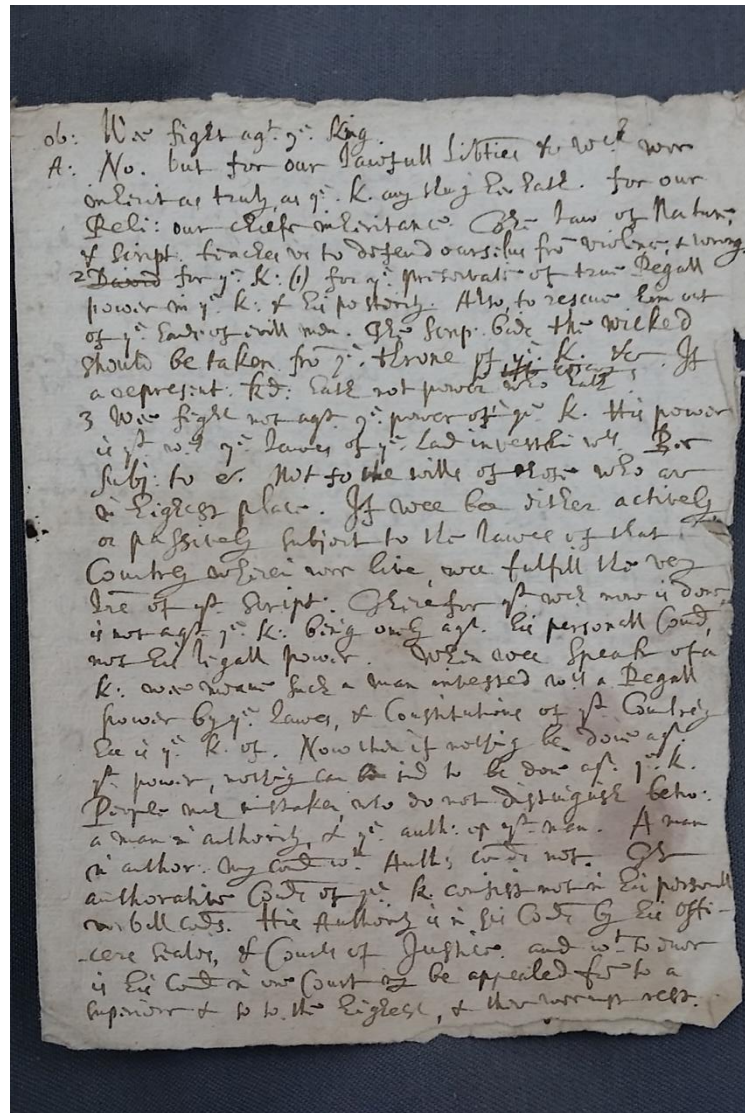 ob: Wee fight agt. ye. King.
A: No. but for our lawfull libties to wch wee
inherit as truly as ye. K. any thing hee hath. for our
Reli: our cheife inheritance. The law of Nature,
& Script. teaches us to defend ourselus fro violence, & wrong.
2 David for ye. K: (1) for ye. preservatn of true Regall
power in ye. K: & his posterity. Also, to rescue him out
of ye. hands of evill men. The Scrip. bids the wicked
should be taken fro ye. throne of ye. K. &c. If
a not power who hath
3 Wee fight not agt. ye. power of ye. K. His power
is yt. wch ye. lawes of ye. Lad invest him wth. Bee
Subj: to &. Not to the wills of those who are
in highest place. If wee bee either actively
or passively subject to the lawes of that
Countrey wherei wee live, wee fulfill the very
lre of yt. Script. Therefor yt. wch now is done,
is not agt. ye. K: being onely agt. his personall Comd,
not his legall power. When wee speak of a
K: wee meane such a man invested wth a Regall
power by ye. lawes, & Constitutions of yt. Countrey
hee is ye. K. of. Now then if nothing be done agt.
yt. power, nothing can be sd to be don agt. ye. K.
People much mistaken, who do not distinguish betw:
a man in authority, & ye. auth: of yt. man. A man
in author: may comd wt. Auth: comds not. The
authorative Comds of ye. K. consist not in his personall
verball comds. His Authority is in his Comds by his Offi-
-cers seales, & Courts of Justice. and wt. to ever
is his Comd in one Court may be appealed fro to a
superior & so to the highest, & there wee must rest.